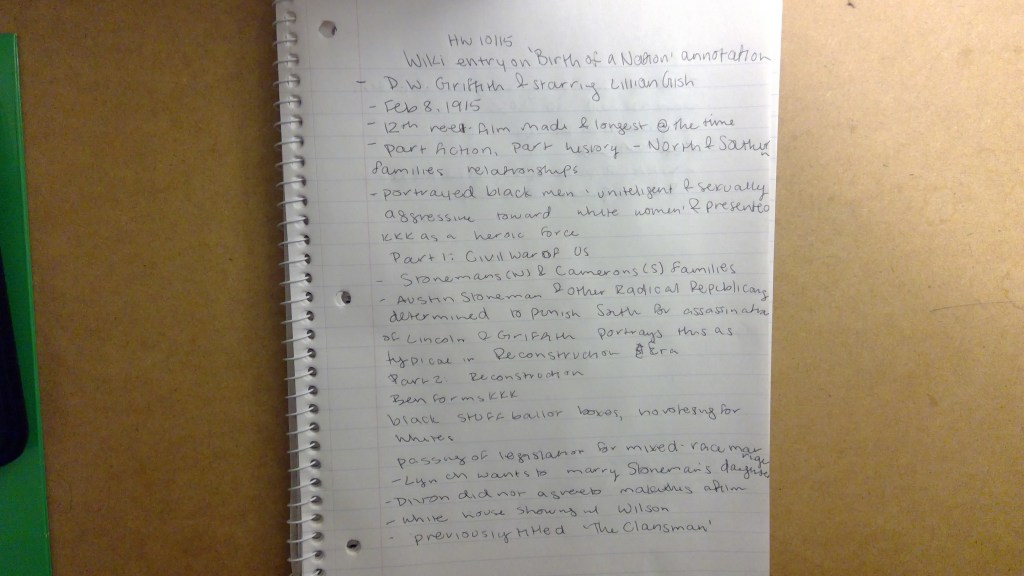 HW 10/15
Wiki entry on 'Birth of a Nation' annotation
- D.W. Griffith & starring Lillian Gish
- Feb 8, 1915
- 12th reel film made & longest @ the time
- part fiction, part history - North & Southern
families relationships
- portrayed black men: uniteligent & sexually
aggressive toward white women' & presented
KKK as a heroic force
Part 1: Civil War of US
- Stonemans (N) & Camerons (S) families
- Austin Stoneman & other Radical Republicans
determined to punish South for assassination
of Lincoln & Griffith portrays this as
typical in Reconstruction Era
Part 2: Reconstruction
Ben forms KKK
black stuff ballot boxes, no voteing for
Whites
passing of legislation for mixed-race marriage
- Lyn ch wants to marry Stoneman's daughter
- Dixon did not agree to making this a film
- White house showing w/ Wilson
- previously titled 'The Clansman'